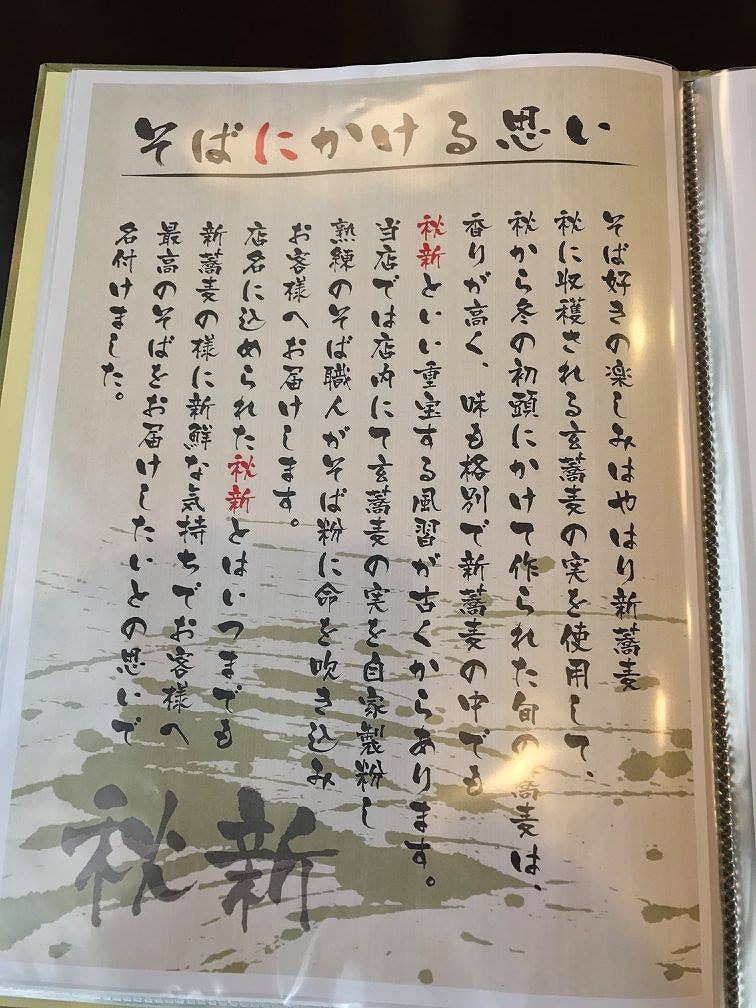 そばにかける思い
そば好きの楽しみはやはり新蕎麦
秋に収穫される玄蕎麦の実を使用して、
秋から冬の初頭にかけて作られた旬の蕎麦は、
香りが高く、味も格別で新蕎麦の中でも
秋新といい重宝する風習が古くからあります。
当店では店内にて玄蕎麦の実を自家製粉し
熟練のそば職人がそば粉に命を吹き込み
お客様へお届けします。
店名に込められた秋新とはいつまでも
新蕎麦の様に新鮮な気持ちでお客様へ
最高のそばをお届けしたいとの思いで
名付けました。
秋新